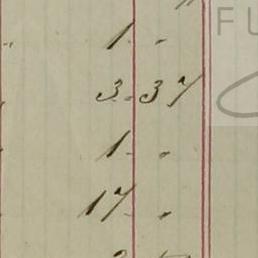 "
1 . "
3. 37
1 . "
17 . "